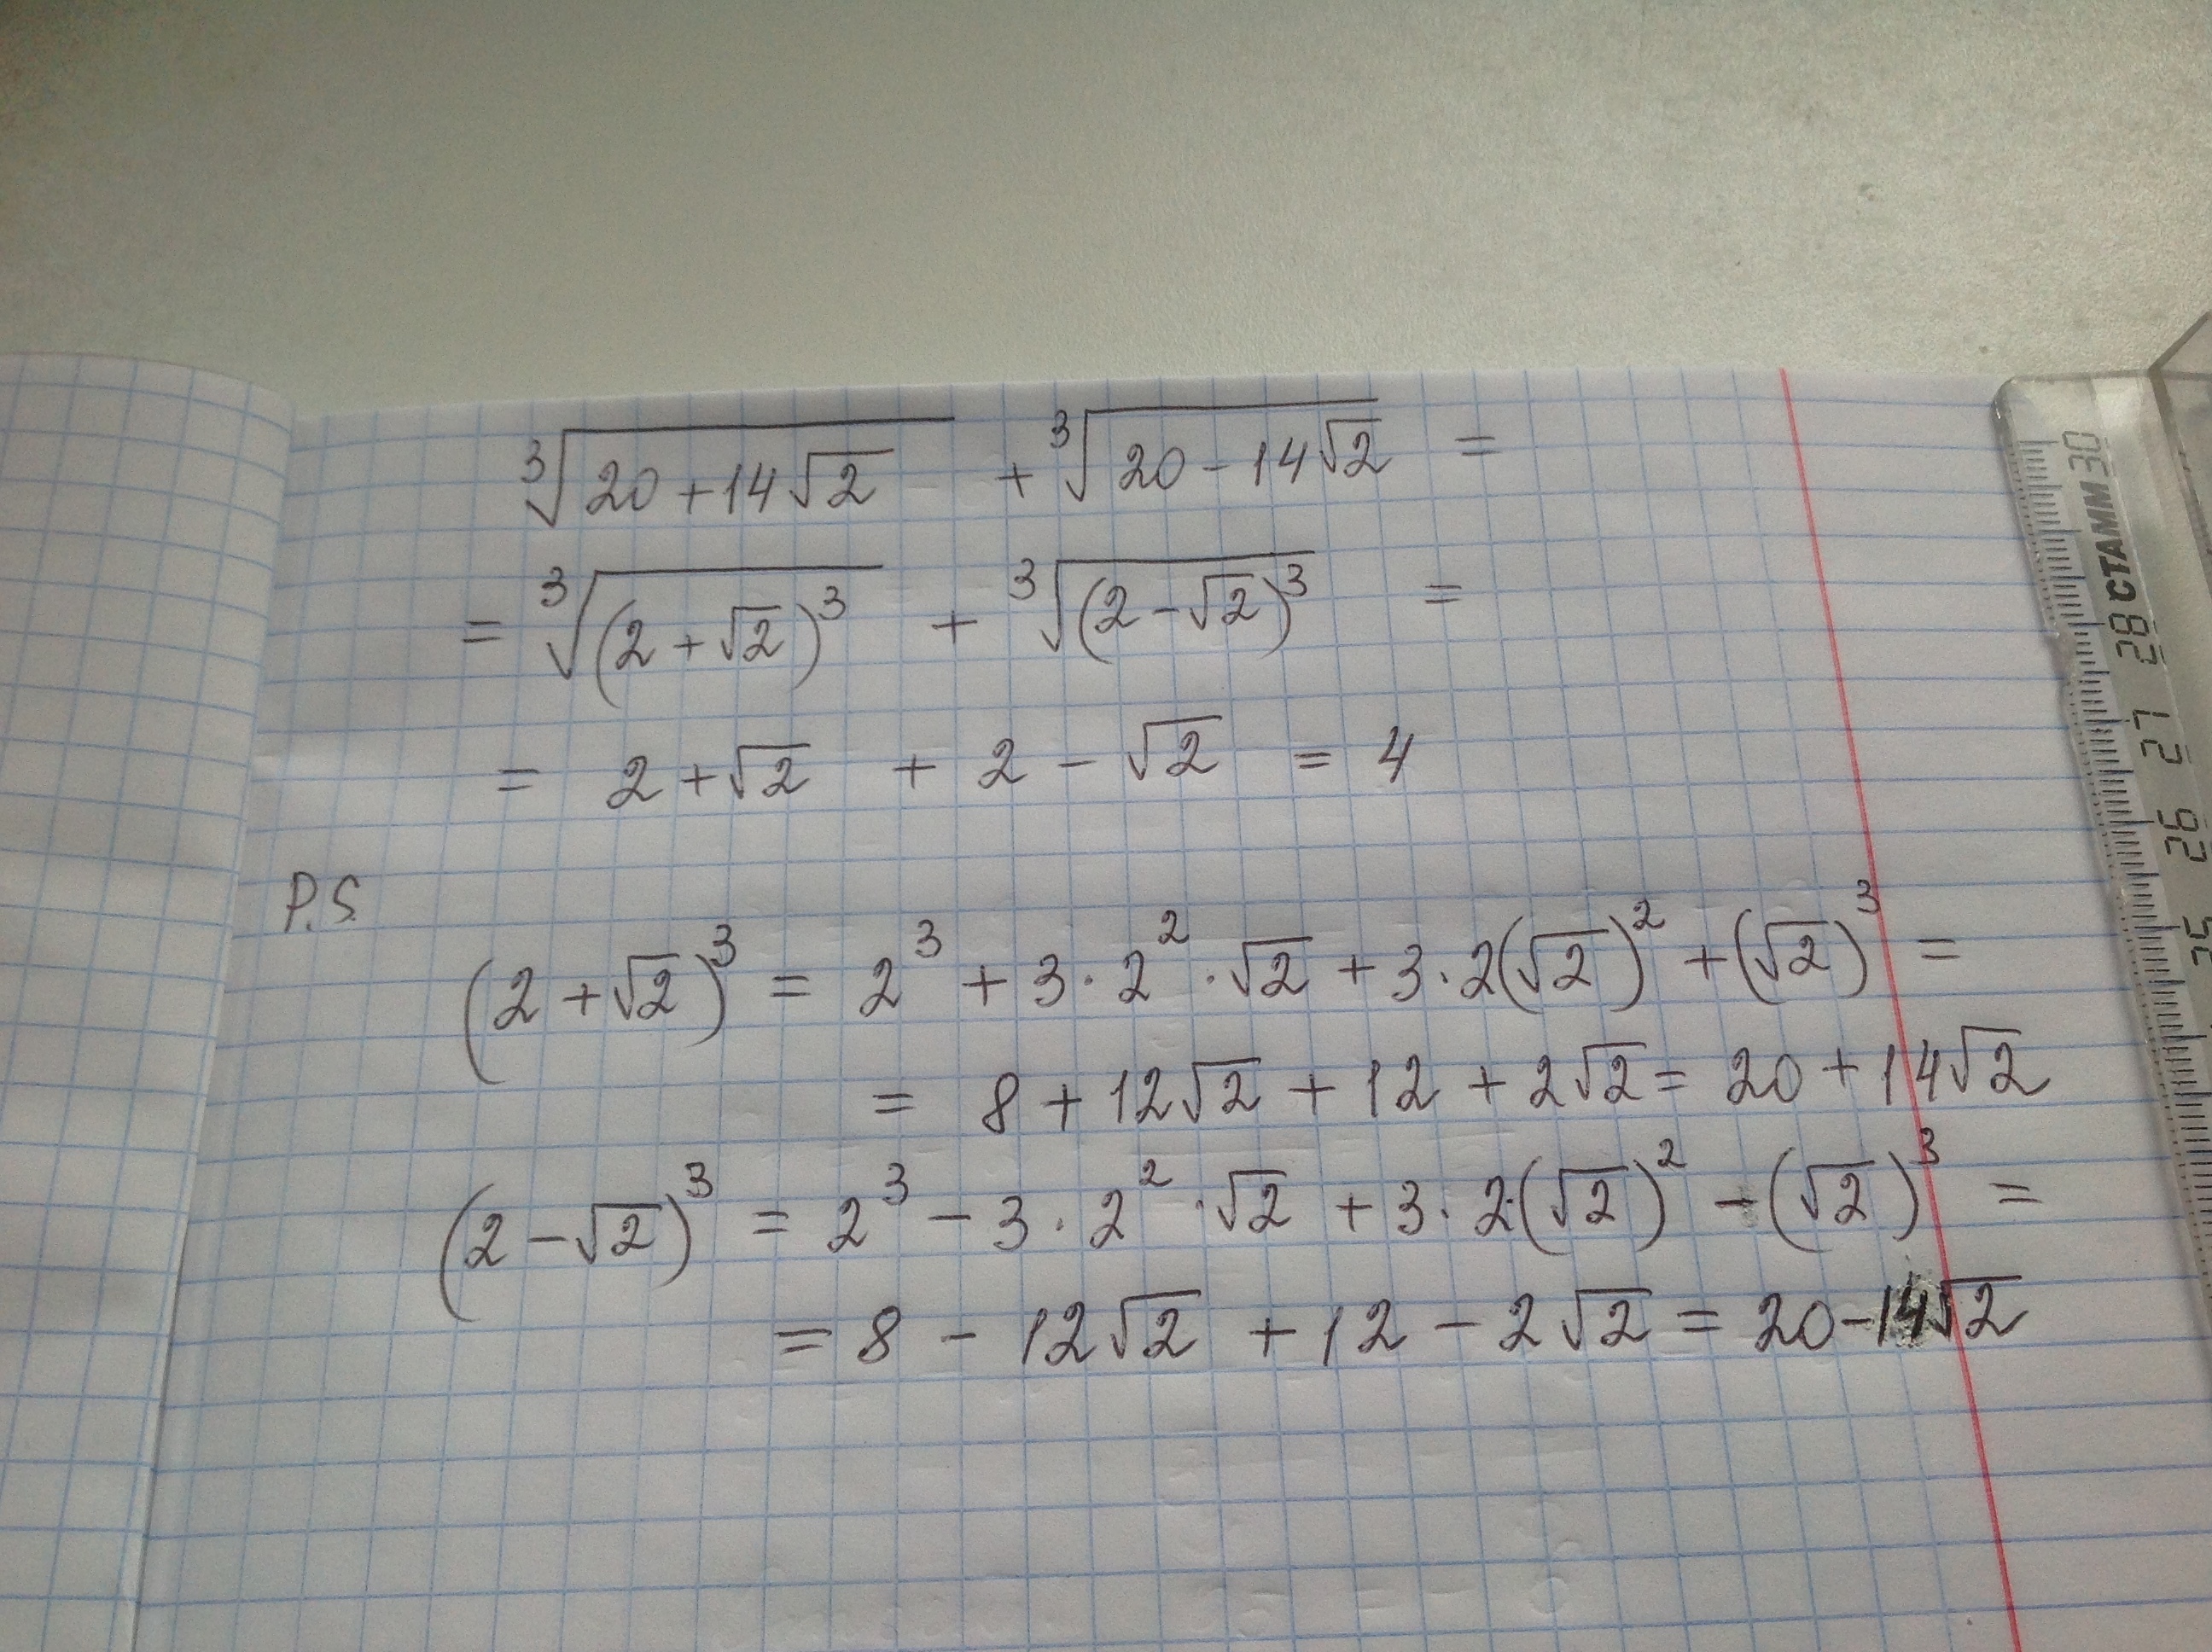 ∛(20 + 14√2) + ∛(20 - 14√2) =
= ∛((2 + √2)³) + ∛((2 - √2)³) =
= 2 + √2 + 2 - √2 = 4
P.S
(2 + √2)³ = 2³ + 3 · 2² · √2 + 3 · 2(√2)² + (√2)³ =
= 8 + 12√2 + 12 + 2√2 = 20 + 14√2
(2 - √2)³ = 2³ - 3 · 2² · √2 + 3 · 2·(√2)² - (√2)³ =
= 8 - 12√2 + 12 - 2√2 = 20 - 14√2
30
СТАММ
28
27
26
25